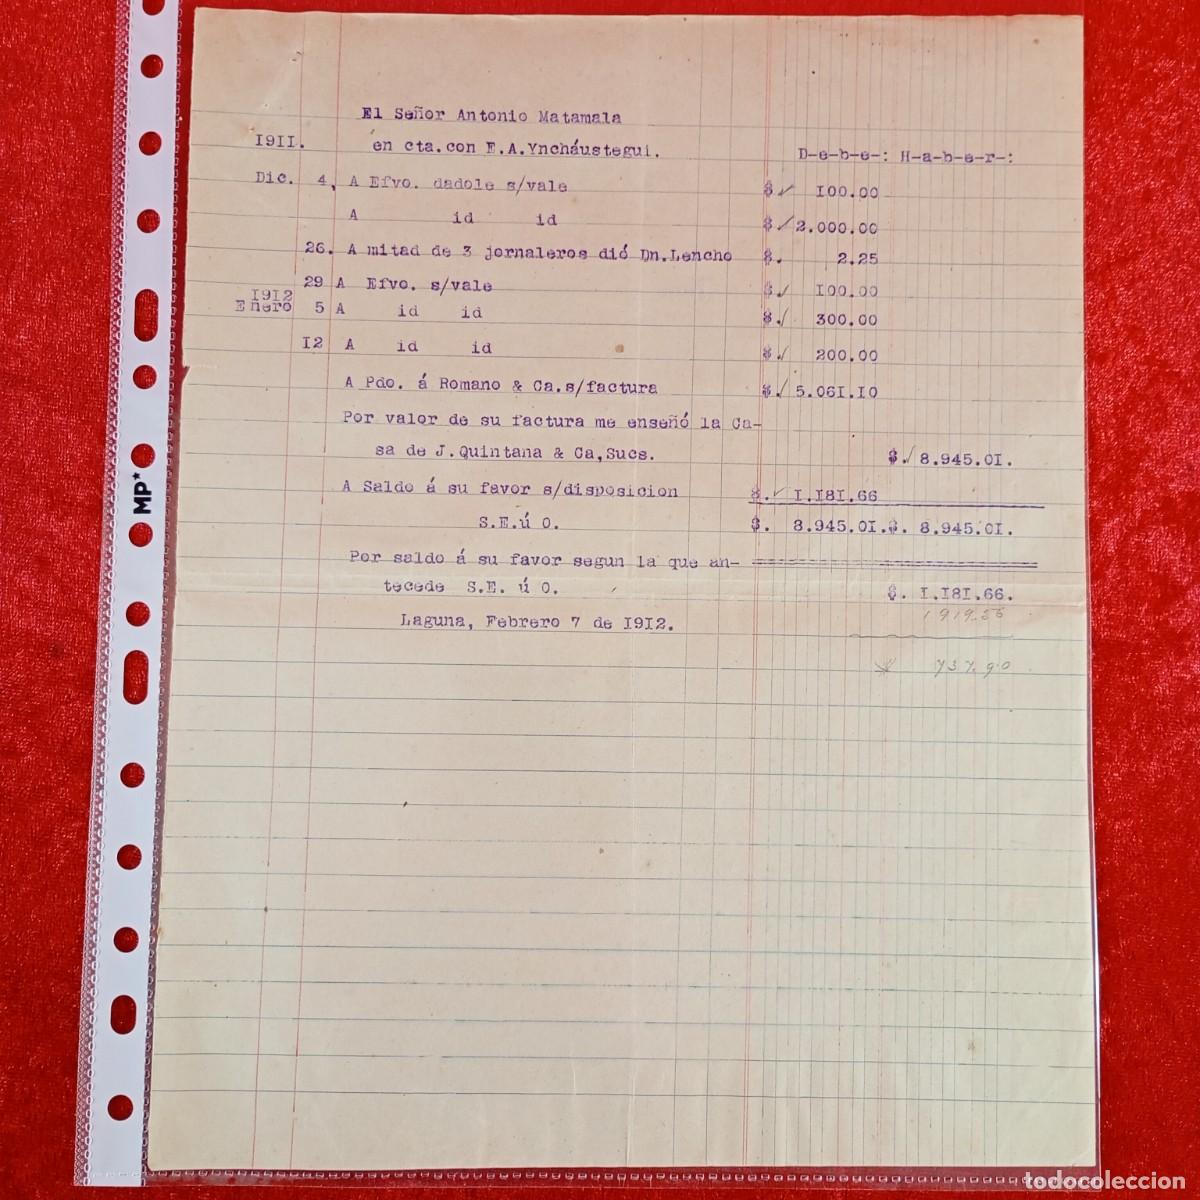 El Señor Antonio Matamala
I9II. en cta.con E.A.Yncháustegui. D-e-b-e-: H-a-b-e-r-:
Dic. 4, A Efvo. dadole s/vale $ ✓ I00.00
A id id $ ✓ 2.000.00
26. A mitad de 3 jornaleros dió Dn.Lencho $. 2.25
29 A Efvo. s/vale $. ✓ I00.00
I9I2
Enero 5 A id id $. ✓ 300.00
I2 A id id $. ✓ 200.00
A Pdo. á Romano & Ca.s/factura $. ✓ 5.06I.I0
Por valor de su factura me enseñó la Ca-
sa de J.Quintana & Ca,Sucs. $. ✓ 8.945.0I.
A Saldo á su favor s/disposicion $. ✓ I.I8I.66
S.E.ú O. $. 8.945.0I.$. 8.945.0I.
Por saldo á su favor segun la que an-
tecede S.E. ú O. $. I.I8I.66.
1919.56
Laguna, Febrero 7 de I9I2.
737.90
MP*
todocoleccion